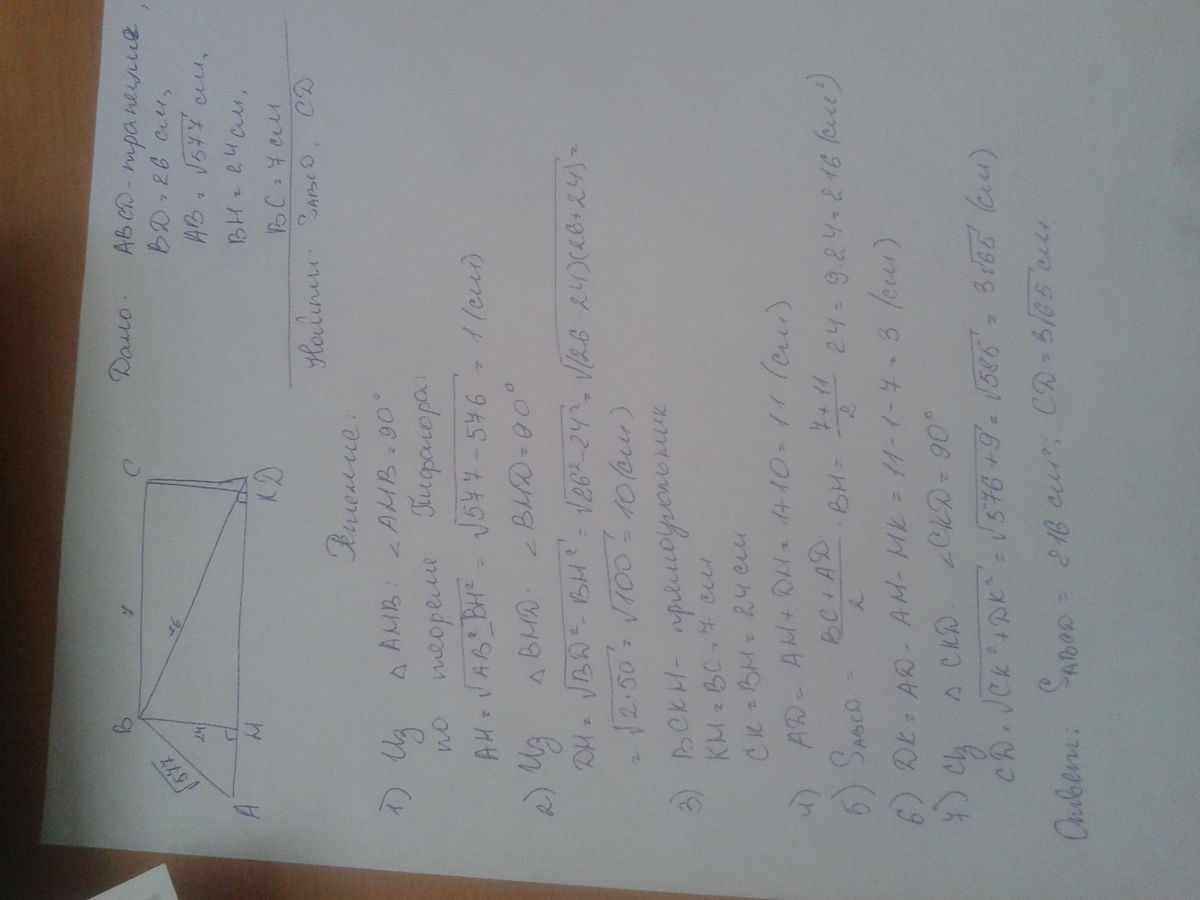 Дано: ABCD - трапеция,
BD = 26 см,
AB = √577 см,
BH = 24 см,
BC = 7 см
Найти: SABCD, CD
B 7 C
√577 24 26
A H K D
Решение:
1) Из △ AHB: ∠AHB = 90°
по теореме Пифагора:
AH = √AB² - BH² = √577 - 576 = 1 (см)
2) Из △ BHD. ∠BHD = 90°
DH = √BD² - BH² = √26² - 24² = √(26 - 24)(26 + 24) =
= √2·50 = √100 = 10 (см)
3) BCKH - прямоугольник
KH = BC = 7 см
CK = BH = 24 см
4) AD = AH + DH = 1 + 10 = 11 (см)
5) SABCD = BC + AD / 2 · BH = 7 + 11 / 2 · 24 = 9·24 = 216 (см²)
6) DK = AD - AH - HK = 11 - 1 - 7 = 3 (см)
7) Из △ CKD. ∠CKD = 90°
CD = √CK² + DK² = √576 + 9 = √585 = 3√65 (см)
Ответ: SABCD = 216 см²; CD = 3√65 см.